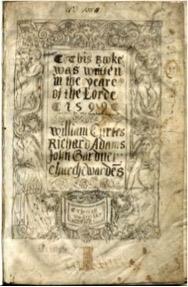 This Booke
was writen
in the yeare
of the Lorde
1599
William Curtes
Richard Adams
John Gardner
Churchwardēs